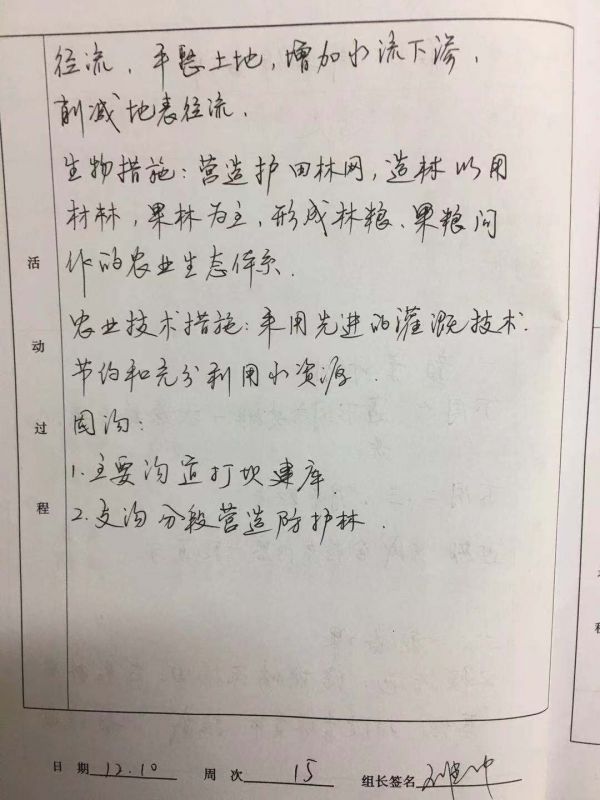 径流，平整土地，增加水流下渗，
削减地表径流．
生物措施：营造护田林网，造林以用
材林，果林为主，形成林粮、果粮间
作的农业生态体系．
农业技术措施：采用先进的灌溉技术．
节约和充分利用水资源．
固沟：
1．主要沟道打坝建库．
2．支沟分段营造防护林．
活动过程
日期 12.10 周次 15 组长签名
程